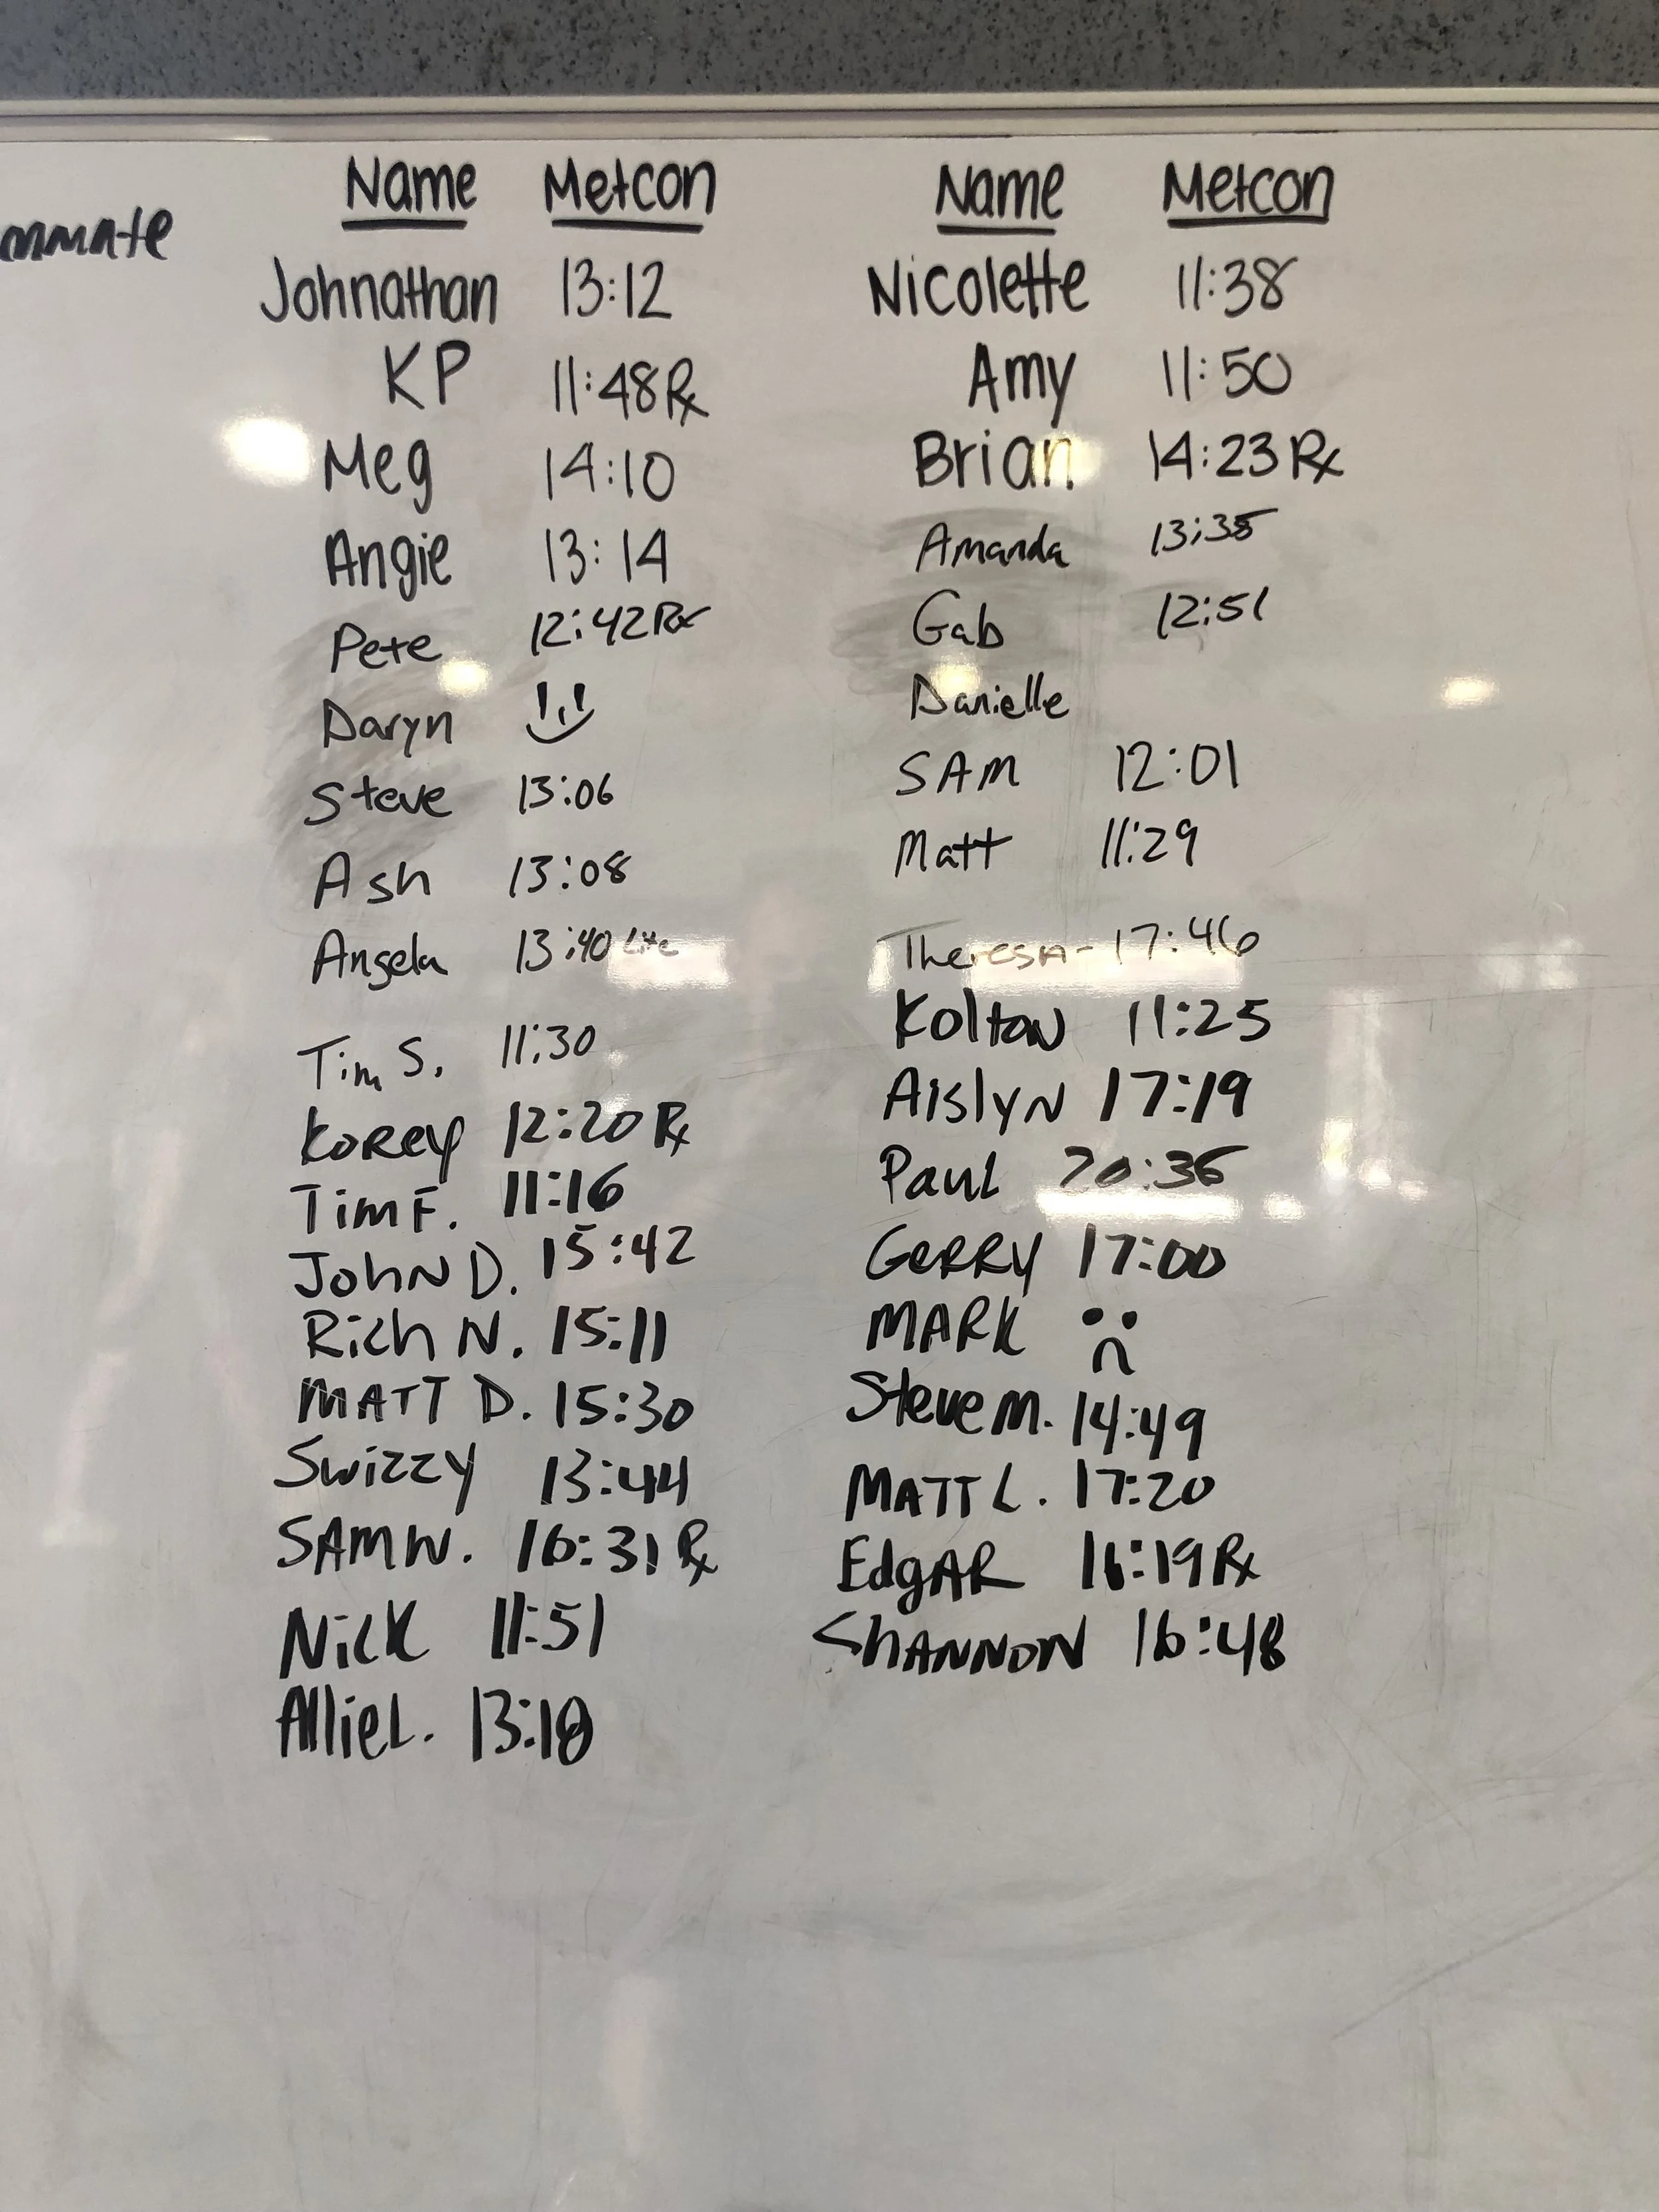 Name Metcon
Johnathan 13:12
KP 11:48 Rx
Meg 14:10
Angie 13:14
Pete 12:42 Rx
Daryn
Steve 13:06
Ash 13:08
Angela 13:40 Lite
Tim S. 11:30
Korey 12:20 Rx
Tim F. 11:16
John D. 15:42
Rich N. 15:11
MATT D. 15:30
Swizzy 13:44
SAM W. 16:31 Rx
Nick 11:51
Allie L.
Name Metcon
Nicolette 11:38
Amy 11:50
Brian 14:23 Rx
Amanda 13:35
Gab 12:51
Danielle
SAM 12:01
Matt 11:29
Theresa - 17:46
Kolton 11:25
Aislyn 17:19
Paul 20:36
Gerry 17:00
MARK
Steve M. 14:49
MATT L. 17:20
EdgAR 16:19 Rx
ShANNON 16:48